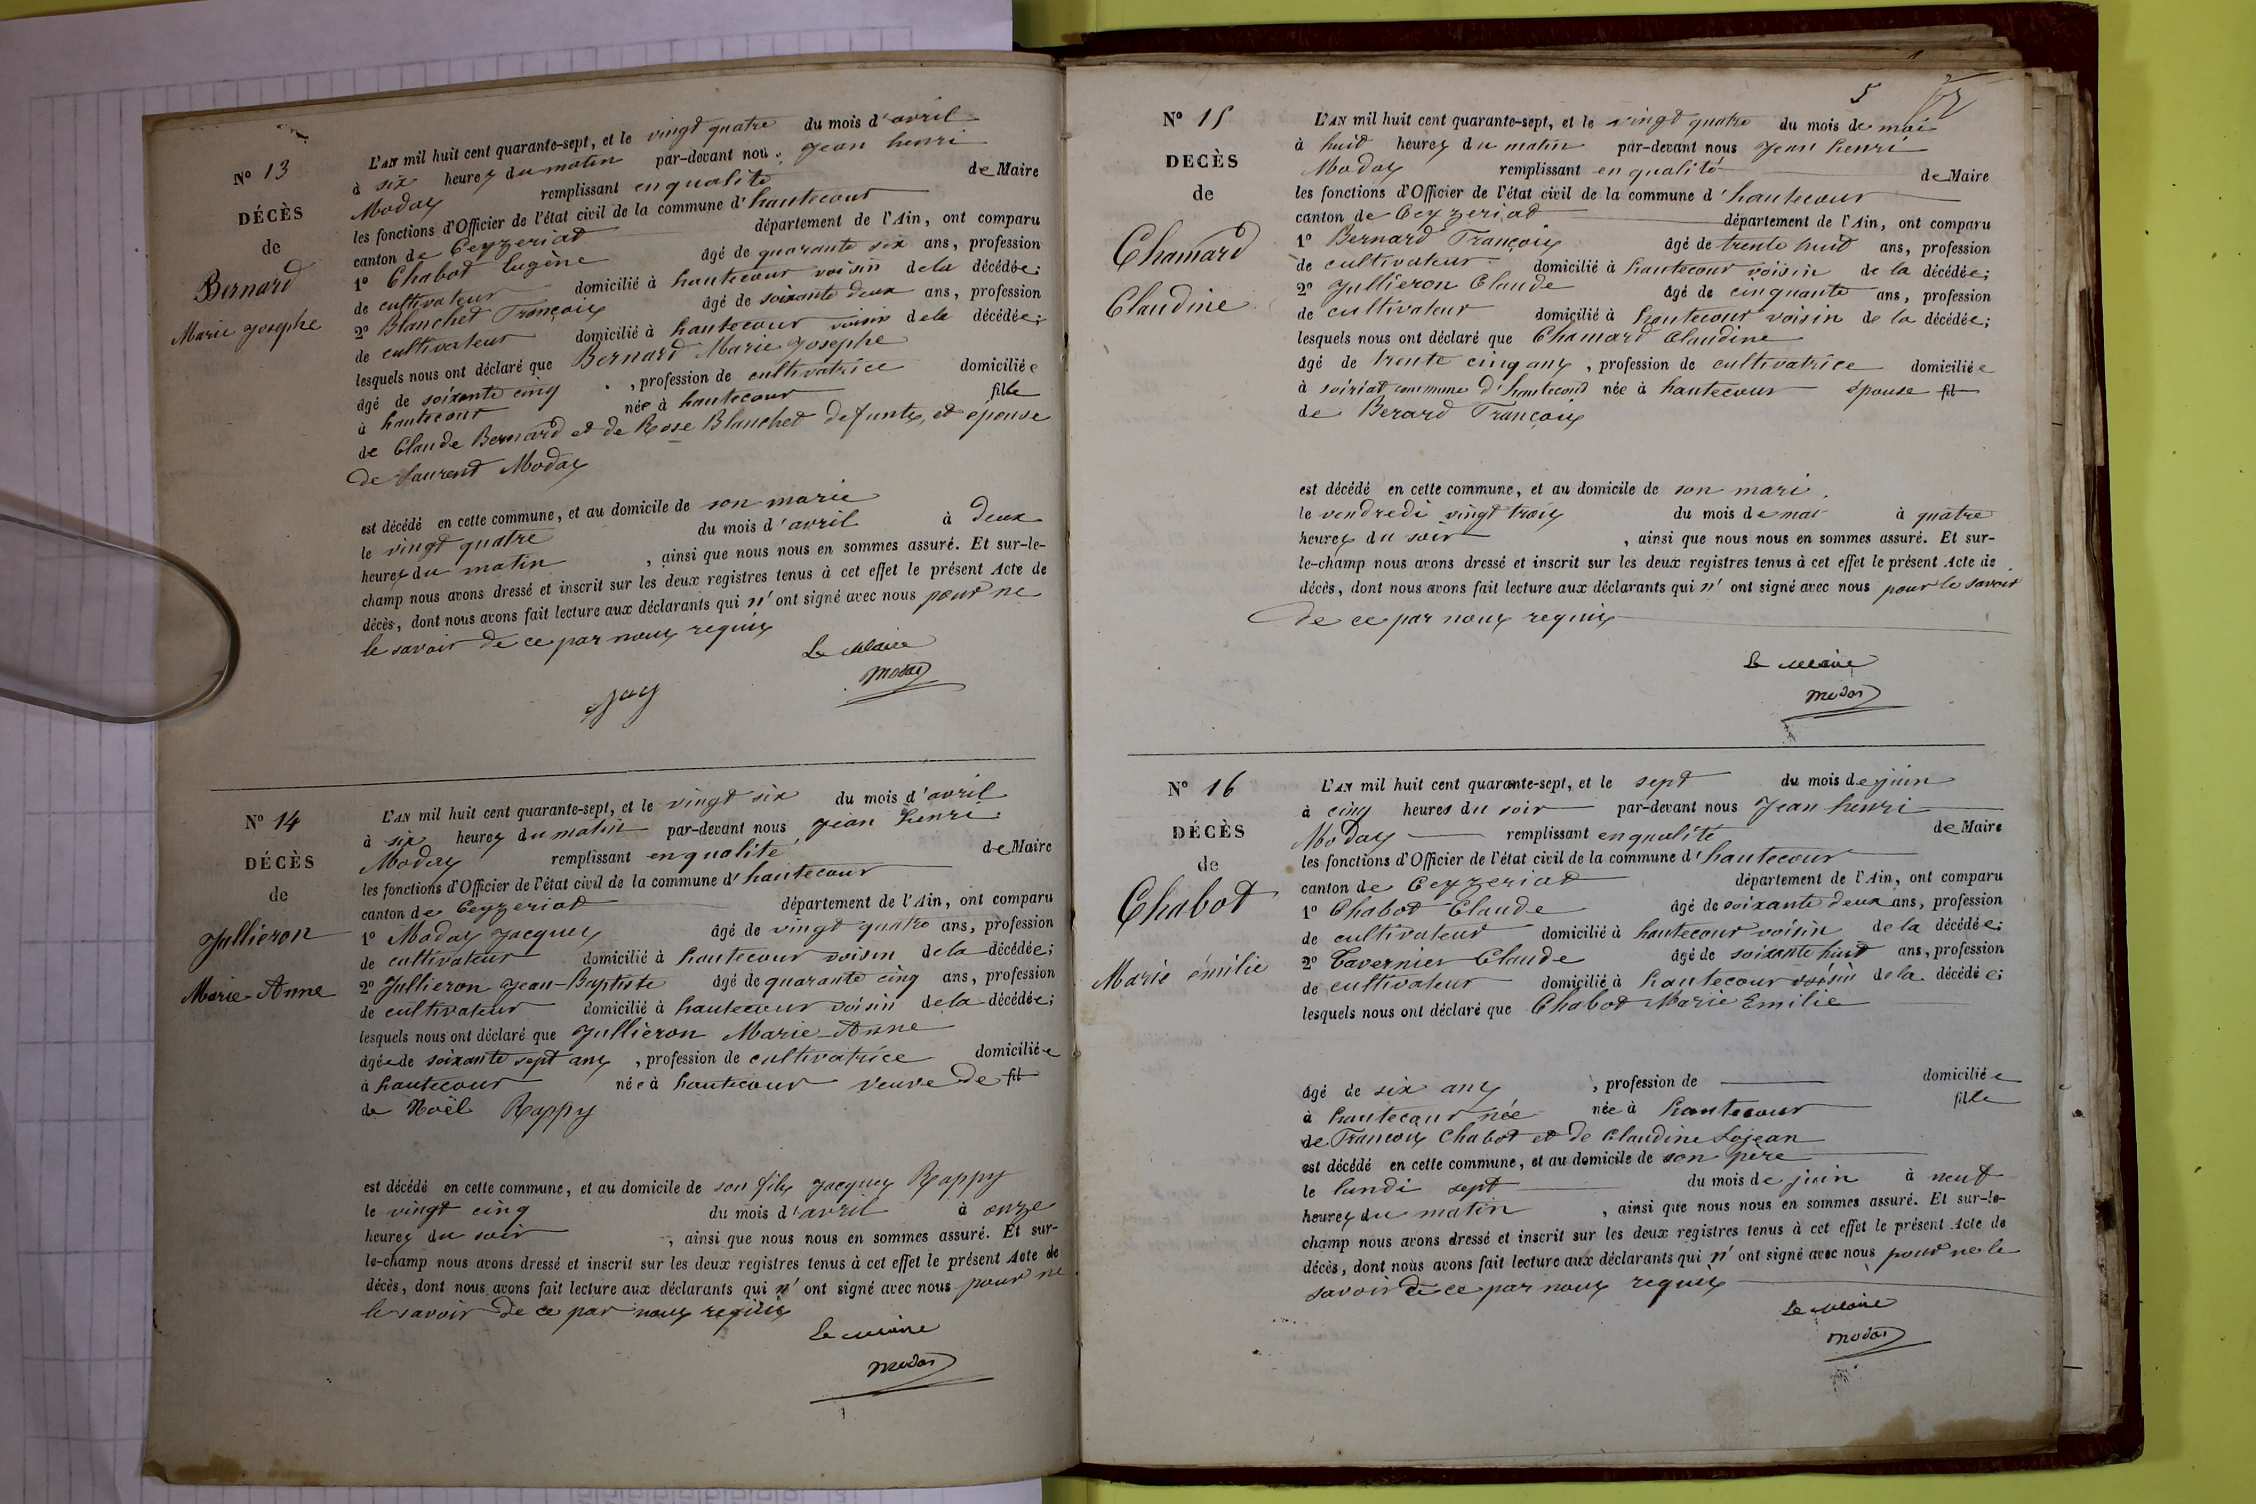 Nº 13
DÉCÈS
de
Bernard
Marie Josephe
L'AN mil huit cent quarante-sept, et le vingt quatre du mois d'avril
à six heures du matin par-devant nous Jean henri
Moday remplissant en qualité de Maire
les fonctions d'Officier de l'état civil de la commune d'hautecour
canton de Ceyzeriat département de l'Ain, ont comparu
1º Chabot Eugène âgé de quarante six ans, profession
de cultivateur domicilié à hautecour voisin de la décédée;
2º Blanchet François âgé de soixante deux ans, profession
de cultivateur domicilié à hautecour voisin de la décédée;
lesquels nous ont déclaré que Bernard Marie Josephe
âgé de soixante cinq , profession de cultivatrice domiciliée
à hautecour née à hautecour fille
de Claude Bernard et de Rose Blanchet defunts, et epouse
de Laurent Moday
est décédé en cette commune, et au domicile de son marie
le vingt quatre du mois d'avril à deux
heures du matin , ainsi que nous nous en sommes assuré. Et sur-le-
champ nous avons dressé et inscrit sur les deux registres tenus à cet effet le présent Acte de
décès, dont nous avons fait lecture aux déclarants qui n'ont signé avec nous pour ne
le savoir de ce par nous requis
Le Maire
Moday
Nº 14
DÉCÈS
de
Jullieron
Marie-Anne
L'AN mil huit cent quarante-sept, et le vingt six du mois d'avril
à six heures du matin par-devant nous Jean henri
Moday remplissant en qualité de Maire
les fonctions d'Officier de l'état civil de la commune d'hautecour
canton de Ceyzeriat département de l'Ain, ont comparu
1º Moday Jacques âgé de vingt quatre ans, profession
de cultivateur domicilié à hautecour voisin de la décédée;
2º Jullieron Jean-Baptiste âgé de quarante cinq ans, profession
de cultivateur domicilié à hautecour voisin de la décédée;
lesquels nous ont déclaré que Jullieron Marie-Anne
âgée de soixante sept ans , profession de cultivatrice domiciliée
à hautecour née à hautecour veuve de fil
de Noël Rappy
est décédé en cette commune, et au domicile de son fils Jacques Rappy
le vingt cinq du mois d'avril à onze
heures du soir , ainsi que nous nous en sommes assuré. Et sur-
le-champ nous avons dressé et inscrit sur les deux registres tenus à cet effet le présent Acte de
décès, dont nous avons fait lecture aux déclarants qui n'ont signé avec nous pour ne
le savoir de ce par nous requis
Le Maire
Moday
5
Nº 15
DECÈS
de
Chamard
Claudine
L'AN mil huit cent quarante-sept, et le vingt quatre du mois de mai
à huit heures du matin par-devant nous Jean henri
Moday remplissant en qualité de Maire
les fonctions d'Officier de l'état civil de la commune d'hautecour
canton de Ceyzeriat département de l'Ain, ont comparu
1º Bernard François âgé de trente huit ans, profession
de cultivateur domicilié à hautecour voisin de la décédée;
2º Jullieron Claude âgé de cinquante ans, profession
de cultivateur domicilié à hautecour voisin de la décédée;
lesquels nous ont déclaré que Chamard Claudine
âgé de trente cinq ans , profession de cultivatrice domiciliée
à soiriat commune d'hautecour née à hautecour épouse fil
de Berard François
est décédé en cette commune, et au domicile de son mari
le vendredi vingt trois du mois de mai à quatre
heures du soir , ainsi que nous nous en sommes assuré. Et sur-
le-champ nous avons dressé et inscrit sur les deux registres tenus à cet effet le présent Acte de
décès, dont nous avons fait lecture aux déclarants qui n'ont signé avec nous pour le savoir
de ce par nous requis
Le Maire
Moday
Nº 16
DÉCÈS
de
Chabot
Marie émilie
L'AN mil huit cent quarante-sept, et le sept du mois de juin
à cinq heures du soir par-devant nous Jean henri
Moday remplissant en qualité de Maire
les fonctions d'Officier de l'état civil de la commune d'hautecour
canton de Ceyzeriat département de l'Ain, ont comparu
1º Chabot Claude âgé de soixante deux ans, profession
de cultivateur domicilié à hautecour voisin de la décédée;
2º Tavernier Claude âgé de soixante huit ans, profession
de cultivateur domicilié à hautecour voisin de la décédée;
lesquels nous ont déclaré que Chabot Marie Emilie
âgé de six ans , profession de domiciliée
à hautecour née née à hautecour fille
de François Chabot et de Claudine Lojean
est décédé en cette commune, et au domicile de son père
le lundi sept du mois de juin à neuf
heures du matin , ainsi que nous nous en sommes assuré. Et sur-le-
champ nous avons dressé et inscrit sur les deux registres tenus à cet effet le présent Acte de
décès, dont nous avons fait lecture aux déclarants qui n'ont signé avec nous pour ne le
savoir de ce par nous requis
Le Maire
Moday